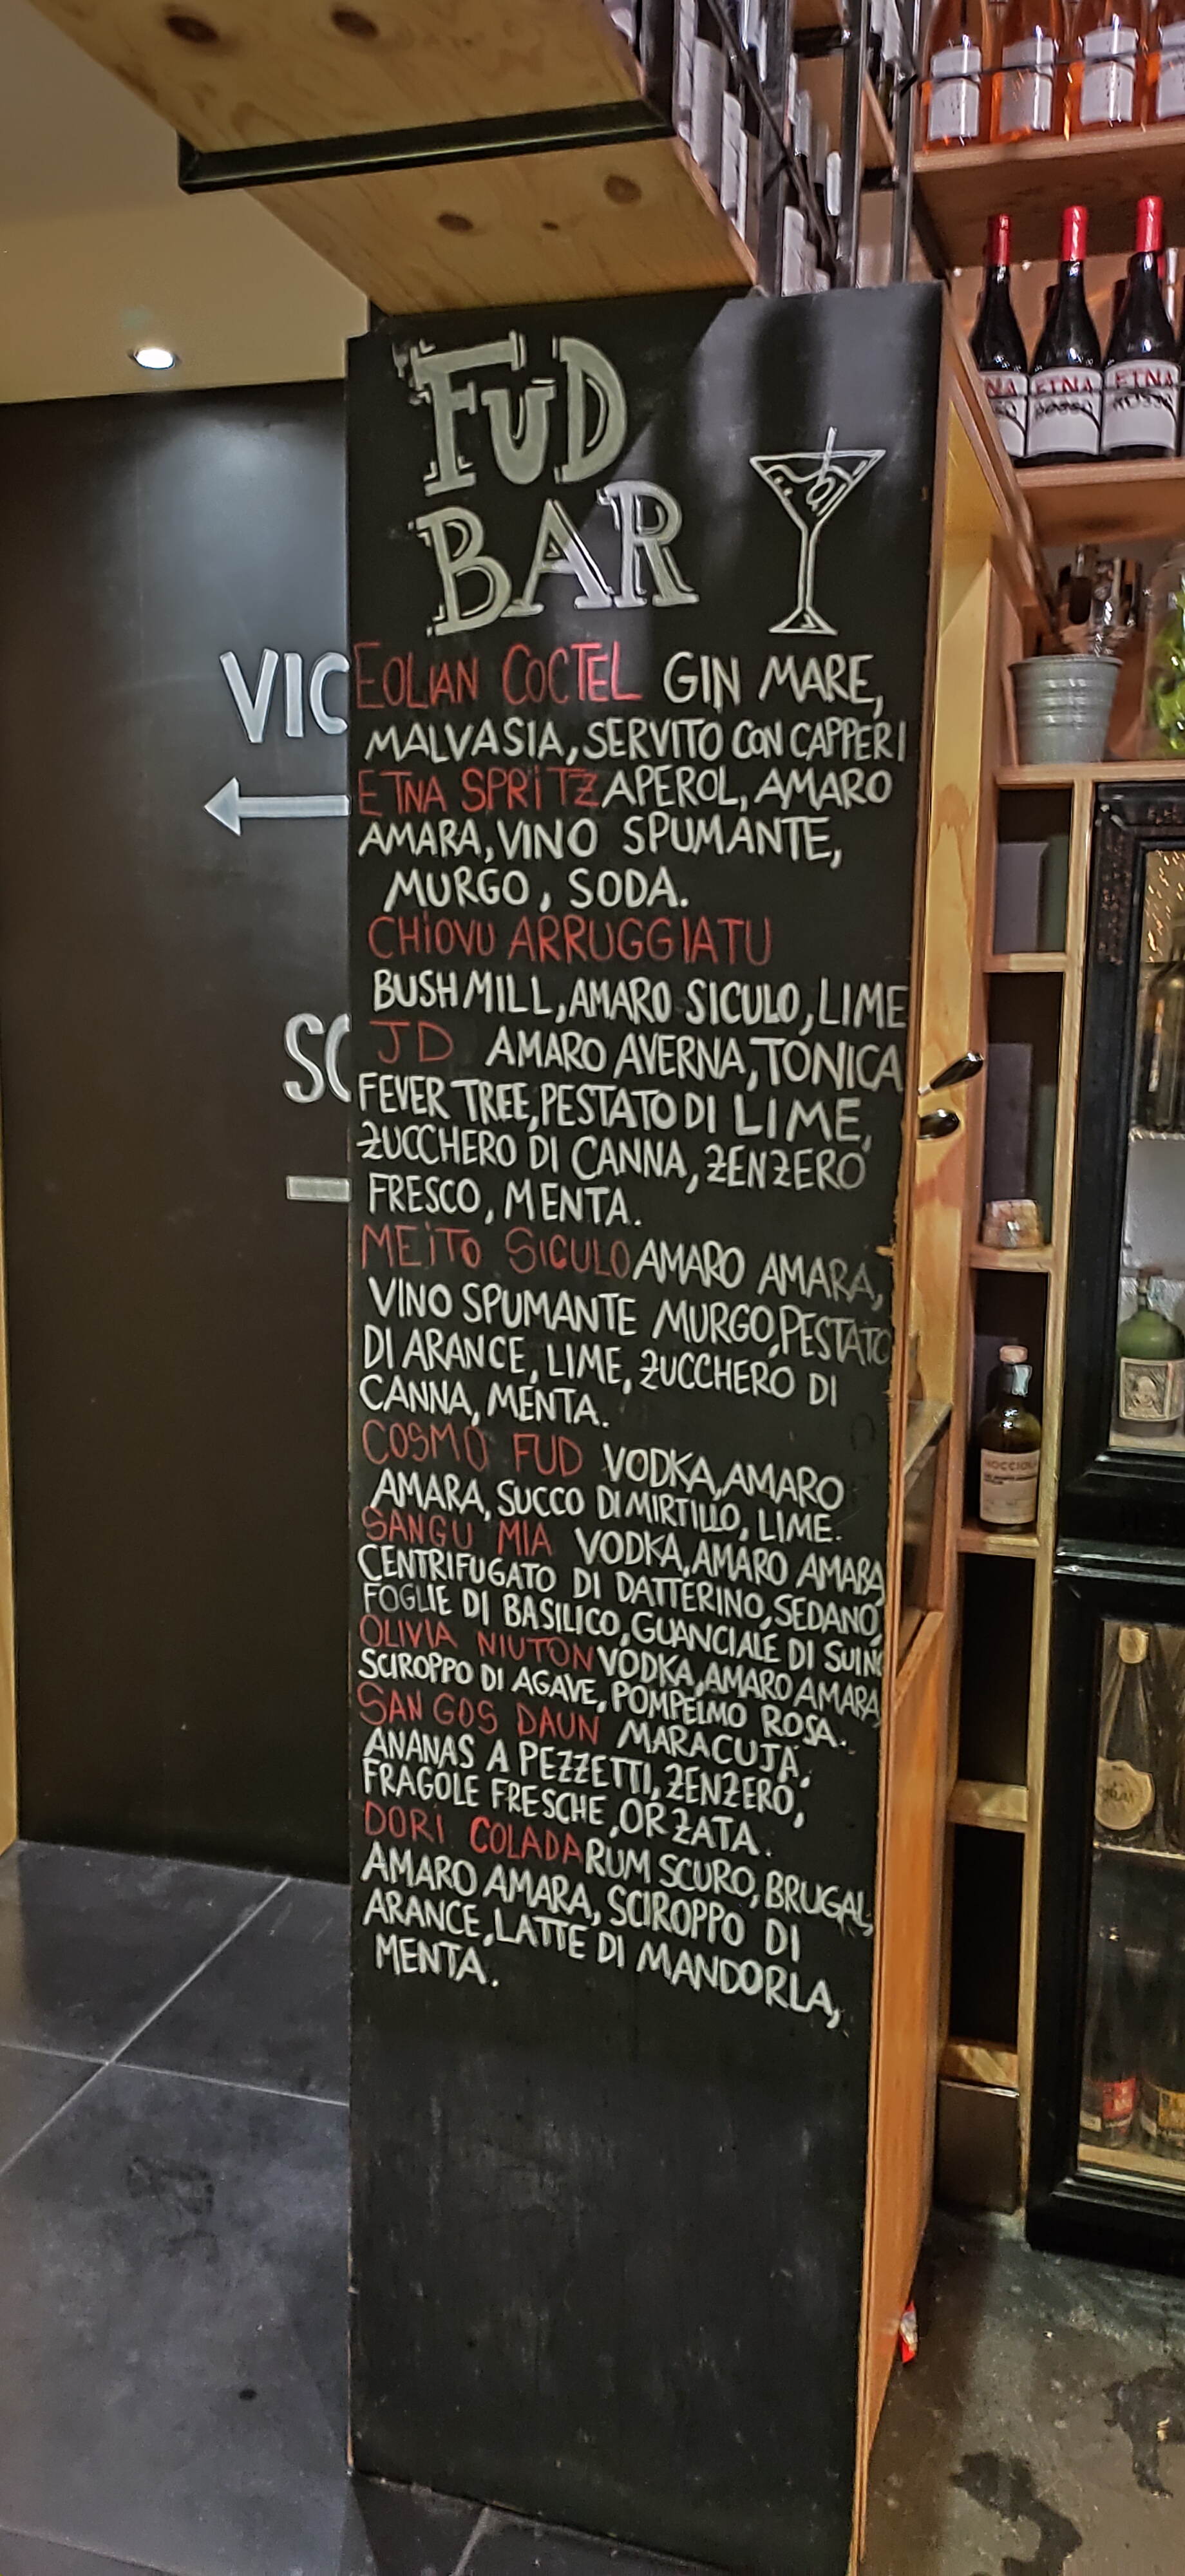 FUD
BAR
EOLIAN COCTEL GIN MARE,
MALVASIA, SERVITO CON CAPPERI
ETNA SPRITZ APEROL, AMARO
AMARA, VINO SPUMANTE,
MURGO, SODA.
CHIOVU ARRUGGIATU
BUSHMILL, AMARO SICULO, LIME
JD AMARO AVERNA, TONICA
FEVER TREE, PESTATO DI LIME,
ZUCCHERO DI CANNA, ZENZERO
FRESCO, MENTA.
MEITO SICULO AMARO AMARA,
VINO SPUMANTE MURGO, PESTATO
DI ARANCE, LIME, ZUCCHERO DI
CANNA, MENTA.
COSMO FUD VODKA, AMARO
AMARA, SUCCO DI MIRTILLO, LIME.
SANGU MIA VODKA, AMARO AMARA,
CENTRIFUGATO DI DATTERINO, SEDANO,
FOGLIE DI BASILICO, GUANCIALE DI SUINO
OLIVIA NIUTON VODKA, AMARO AMARA,
SCIROPPO DI AGAVE, POMPELMO ROSA.
SAN GOS DAUN MARACUJA,
ANANAS A PEZZETTI, ZENZERO,
FRAGOLE FRESCHE, ORZATA.
DORI COLADA RUM SCURO, BRUGAL,
AMARO AMARA, SCIROPPO DI
ARANCE, LATTE DI MANDORLA,
MENTA.
VIC
SO
ETNA
ROSSO
ETNA
ROSSO